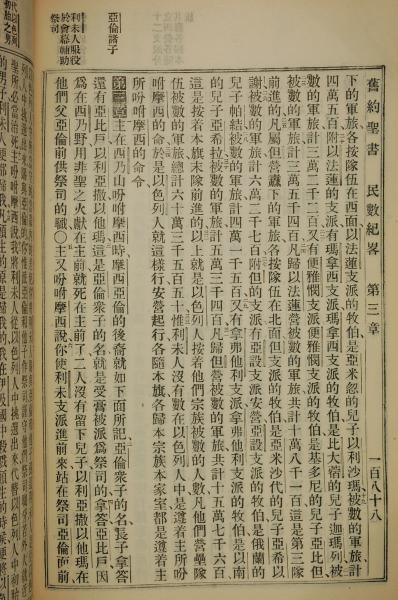 舊約聖書　民數紀畧　第三章　一百八十八
下的軍旅各按隊伍在西面以法蓮支派的牧伯是亞米忽的兒子以利沙瑪被數的軍旅計
四萬五百附以法蓮的支派有瑪拿西支派瑪拿西支派的牧伯是比大蓿的兒子迦瑪列被
數的軍旅計三萬二千二百又有便雅憫支派便雅憫支派的牧伯是基多尼的兒子亞比但
被數的軍旅計三萬五千四百凡歸以法蓮營被數的軍旅共計十萬八千一百這是第三隊
前進的凡屬但營纛下的軍旅各按隊伍在北面但支派的牧伯是亞米沙代的兒子亞希以
謝被數的軍旅計六萬二千七百附但的支派有亞設支派安營亞設支派的牧伯是俄蘭的
兒子帕結被數的軍旅計四萬一千五百又有拿弗他利支派拿弗他利支派的牧伯是以南
的兒子亞希拉被數的軍旅計五萬三千四百凡歸但營被數的軍旅共計十五萬七千六百
這是按着本旗末隊前進的以上就是以色列人按着他們宗族被數的人數凡他們營壘隊
伍被數的軍旅總計六十萬三千五百五十惟利未人沒有數在以色列人中是遵着主所吩
咐摩西的命於是以色列人就這樣行安營起行各隨本旗各歸本宗族本家室都是遵着主
所吩咐摩西的命令
亞倫諸子
第三章主在西乃山吩咐摩西時摩西亞倫的後裔就如下面所記亞倫衆子的名長子拿答
還有亞比戶以利亞撒以他瑪這是亞倫衆子的名就是受膏被派爲祭司的拿答亞比戶因
爲在西乃野用非聖之火獻在主前就死在主前了二人沒有留下兒子以利亞撒以他瑪在
利未人服役
於會幕輔助
祭司
他們父亞倫前供祭司的職○主又吩咐摩西說你使利未支派進前來站在祭司亞倫面前